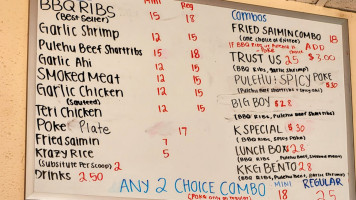 Mini Reg
BBQ RIBS 15 18
(Best Seller)
Garlic Shrimp 12 15
Pulehu Beef Shortribs 15 18
Garlic Ahi 12 15
Smoked Meat 12 15
Garlic Chicken 12 15
(Sauteed)
Teri Chicken 12 15
Poke Plate 17
Fried Saimin 7
Krazy Rice 5
(Substitute Per Scoop) 2
Drinks 2.50
Combos
FRIED SAIMIN COMBO 18
(one choice of Entree)
IF BBQ Ribs or ADD
TRUST US 25 $3.00
(BBQ Ribs, Garlic Shrimp)
PULEHU + SPICY POKE
30
BIG BOY $28
(BBQ Ribs, Pulehu Beef)
K SPECIAL $30
(BBQ Ribs, Spicy Poke)
LUNCH BOX $28
(BBQ Ribs, Pulehu Beef, Smoked Meat)
KKG BENTO $28
(BBQ Ribs, Pulehu Beef, Garlic Shrimp)
ANY 2 CHOICE COMBO MINI REGULAR
(Poke only on regular) 18 25